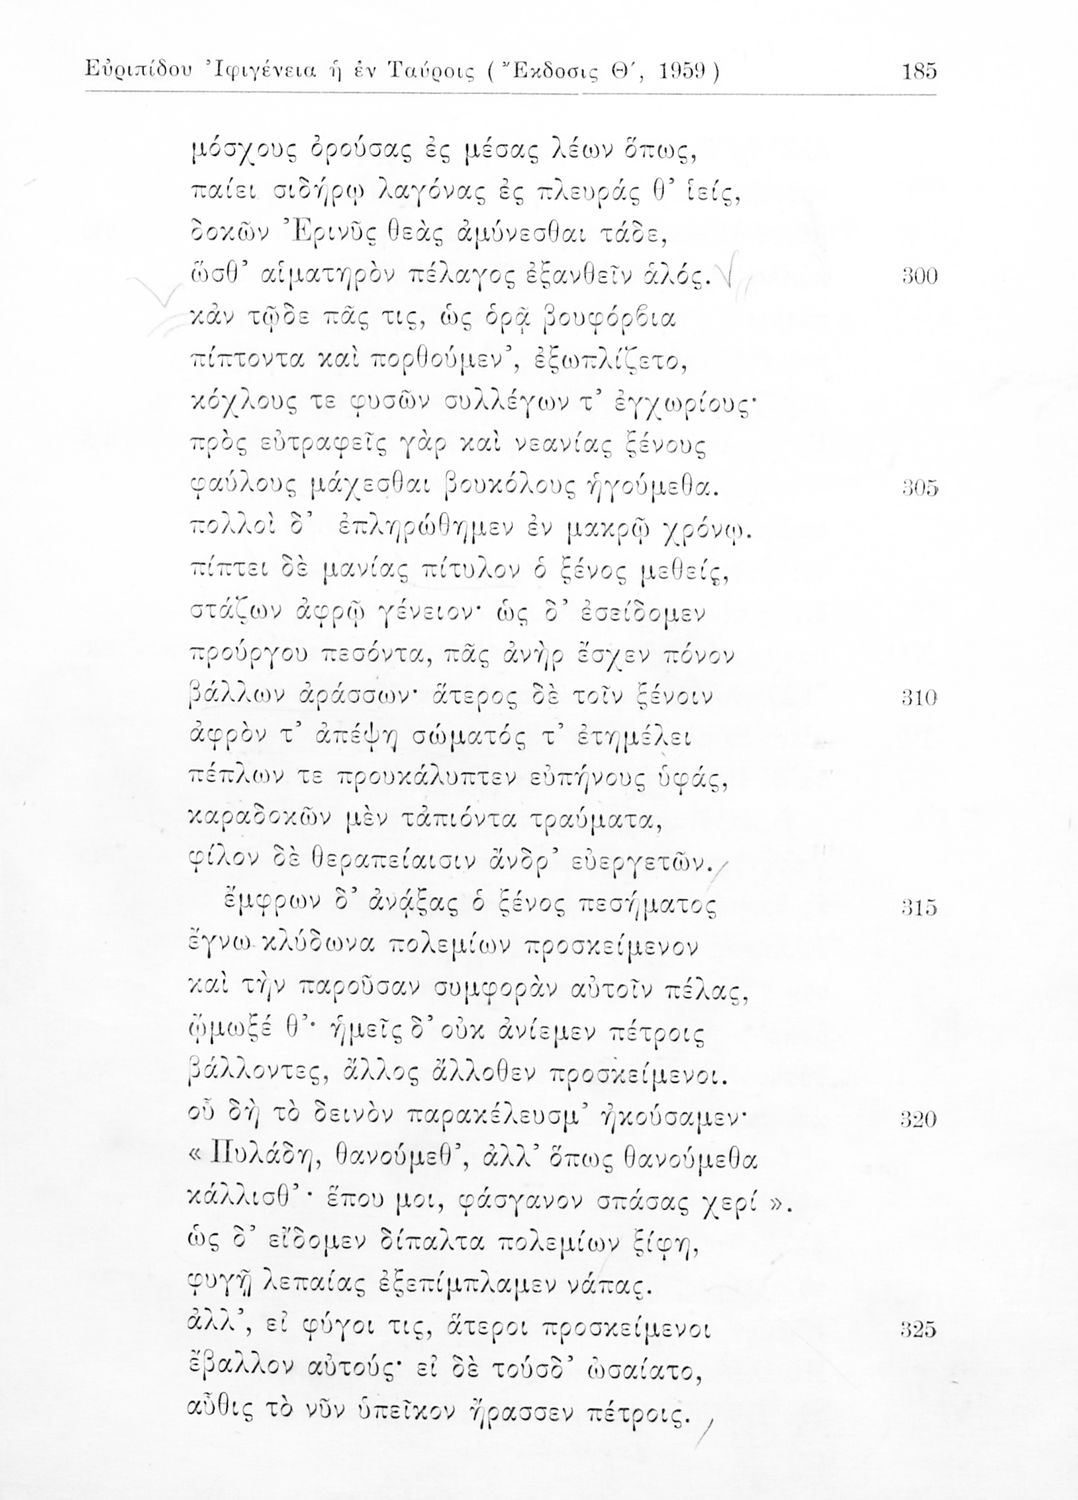 Εὐριπίδου Ἰφιγένεια ἡ ἐν Ταύροις ( Ἔκδοσις Θ΄, 1959 ) 185
μόσχους ὀρούσας ἐς μέσας λέων ὅπως,
παίει σιδήρῳ λαγόνας ἐς πλευράς θ’ ἱείς,
δοκῶν Ἐρινῦς θεὰς ἀμύνεσθαι τάδε,
ὥσθ’ αἱματηρὸν πέλαγος ἐξανθεῖν ἁλός. 300
κἀν τῷδε πᾶς τις, ὡς ὁρᾷ βουφόρβια
πίπτοντα καὶ πορθούμεν’, ἐξωπλίζετο,
κόχλους τε φυσῶν συλλέγων τ’ ἐγχωρίους·
πρὸς εὐτραφεῖς γὰρ καὶ νεανίας ξένους
φαύλους μάχεσθαι βουκόλους ἡγούμεθα. 305
πολλοὶ δ’ ἐπληρώθημεν ἐν μακρῷ χρόνῳ.
πίπτει δὲ μανίας πίτυλον ὁ ξένος μεθείς,
στάζων ἀφρῷ γένειον· ὡς δ’ ἐσείδομεν
προύργου πεσόντα, πᾶς ἀνὴρ ἔσχεν πόνον
βάλλων ἀράσσων· ἅτερος δὲ τοῖν ξένοιν 310
ἀφρόν τ’ ἀπέψη σώματός τ’ ἐτημέλει
πέπλων τε προυκάλυπτεν εὐπήνους ὑφάς,
καραδοκῶν μὲν τἀπιόντα τραύματα,
φίλον δὲ θεραπείαισιν ἄνδρ’ εὐεργετῶν.
ἔμφρων δ’ ἀνᾴξας ὁ ξένος πεσήματος 315
ἔγνω κλύδωνα πολεμίων προσκείμενον
καὶ τὴν παροῦσαν συμφορὰν αὐτοῖν πέλας,
ᾤμωξέ θ’· ἡμεῖς δ’ οὐκ ἀνίεμεν πέτροις
βάλλοντες, ἄλλος ἄλλοθεν προσκείμενοι.
οὗ δὴ τὸ δεινὸν παρακέλευσμ’ ἠκούσαμεν· 320
« Πυλάδη, θανούμεθ’, ἀλλ’ ὅπως θανούμεθα
κάλλισθ’· ἕπου μοι, φάσγανον σπάσας χερί ».
ὡς δ’ εἴδομεν δίπαλτα πολεμίων ξίφη,
φυγῇ λεπαίας ἐξεπίμπλαμεν νάπας.
ἀλλ’, εἰ φύγοι τις, ἅτεροι προσκείμενοι 325
ἔβαλλον αὐτούς· εἰ δὲ τούσδ’ ὠσαίατο,
αὖθις τὸ νῦν ὑπεῖκον ἤρασσεν πέτροις.